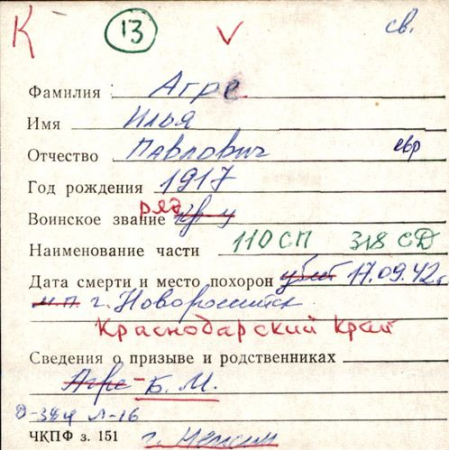 К 13 V св.
Фамилия Агре
Имя Илья
Отчество Павлович евр
Год рождения 1917
Воинское звание ряд
Наименование части 110 СП 318 СД
Дата смерти и место похорон убит 17.09.42г
м.п. г. Новороссийск
Краснодарский край
Сведения о призыве и родственниках
Агре - Б. М.
д-384 л-16
ЧКПФ з. 151 г.